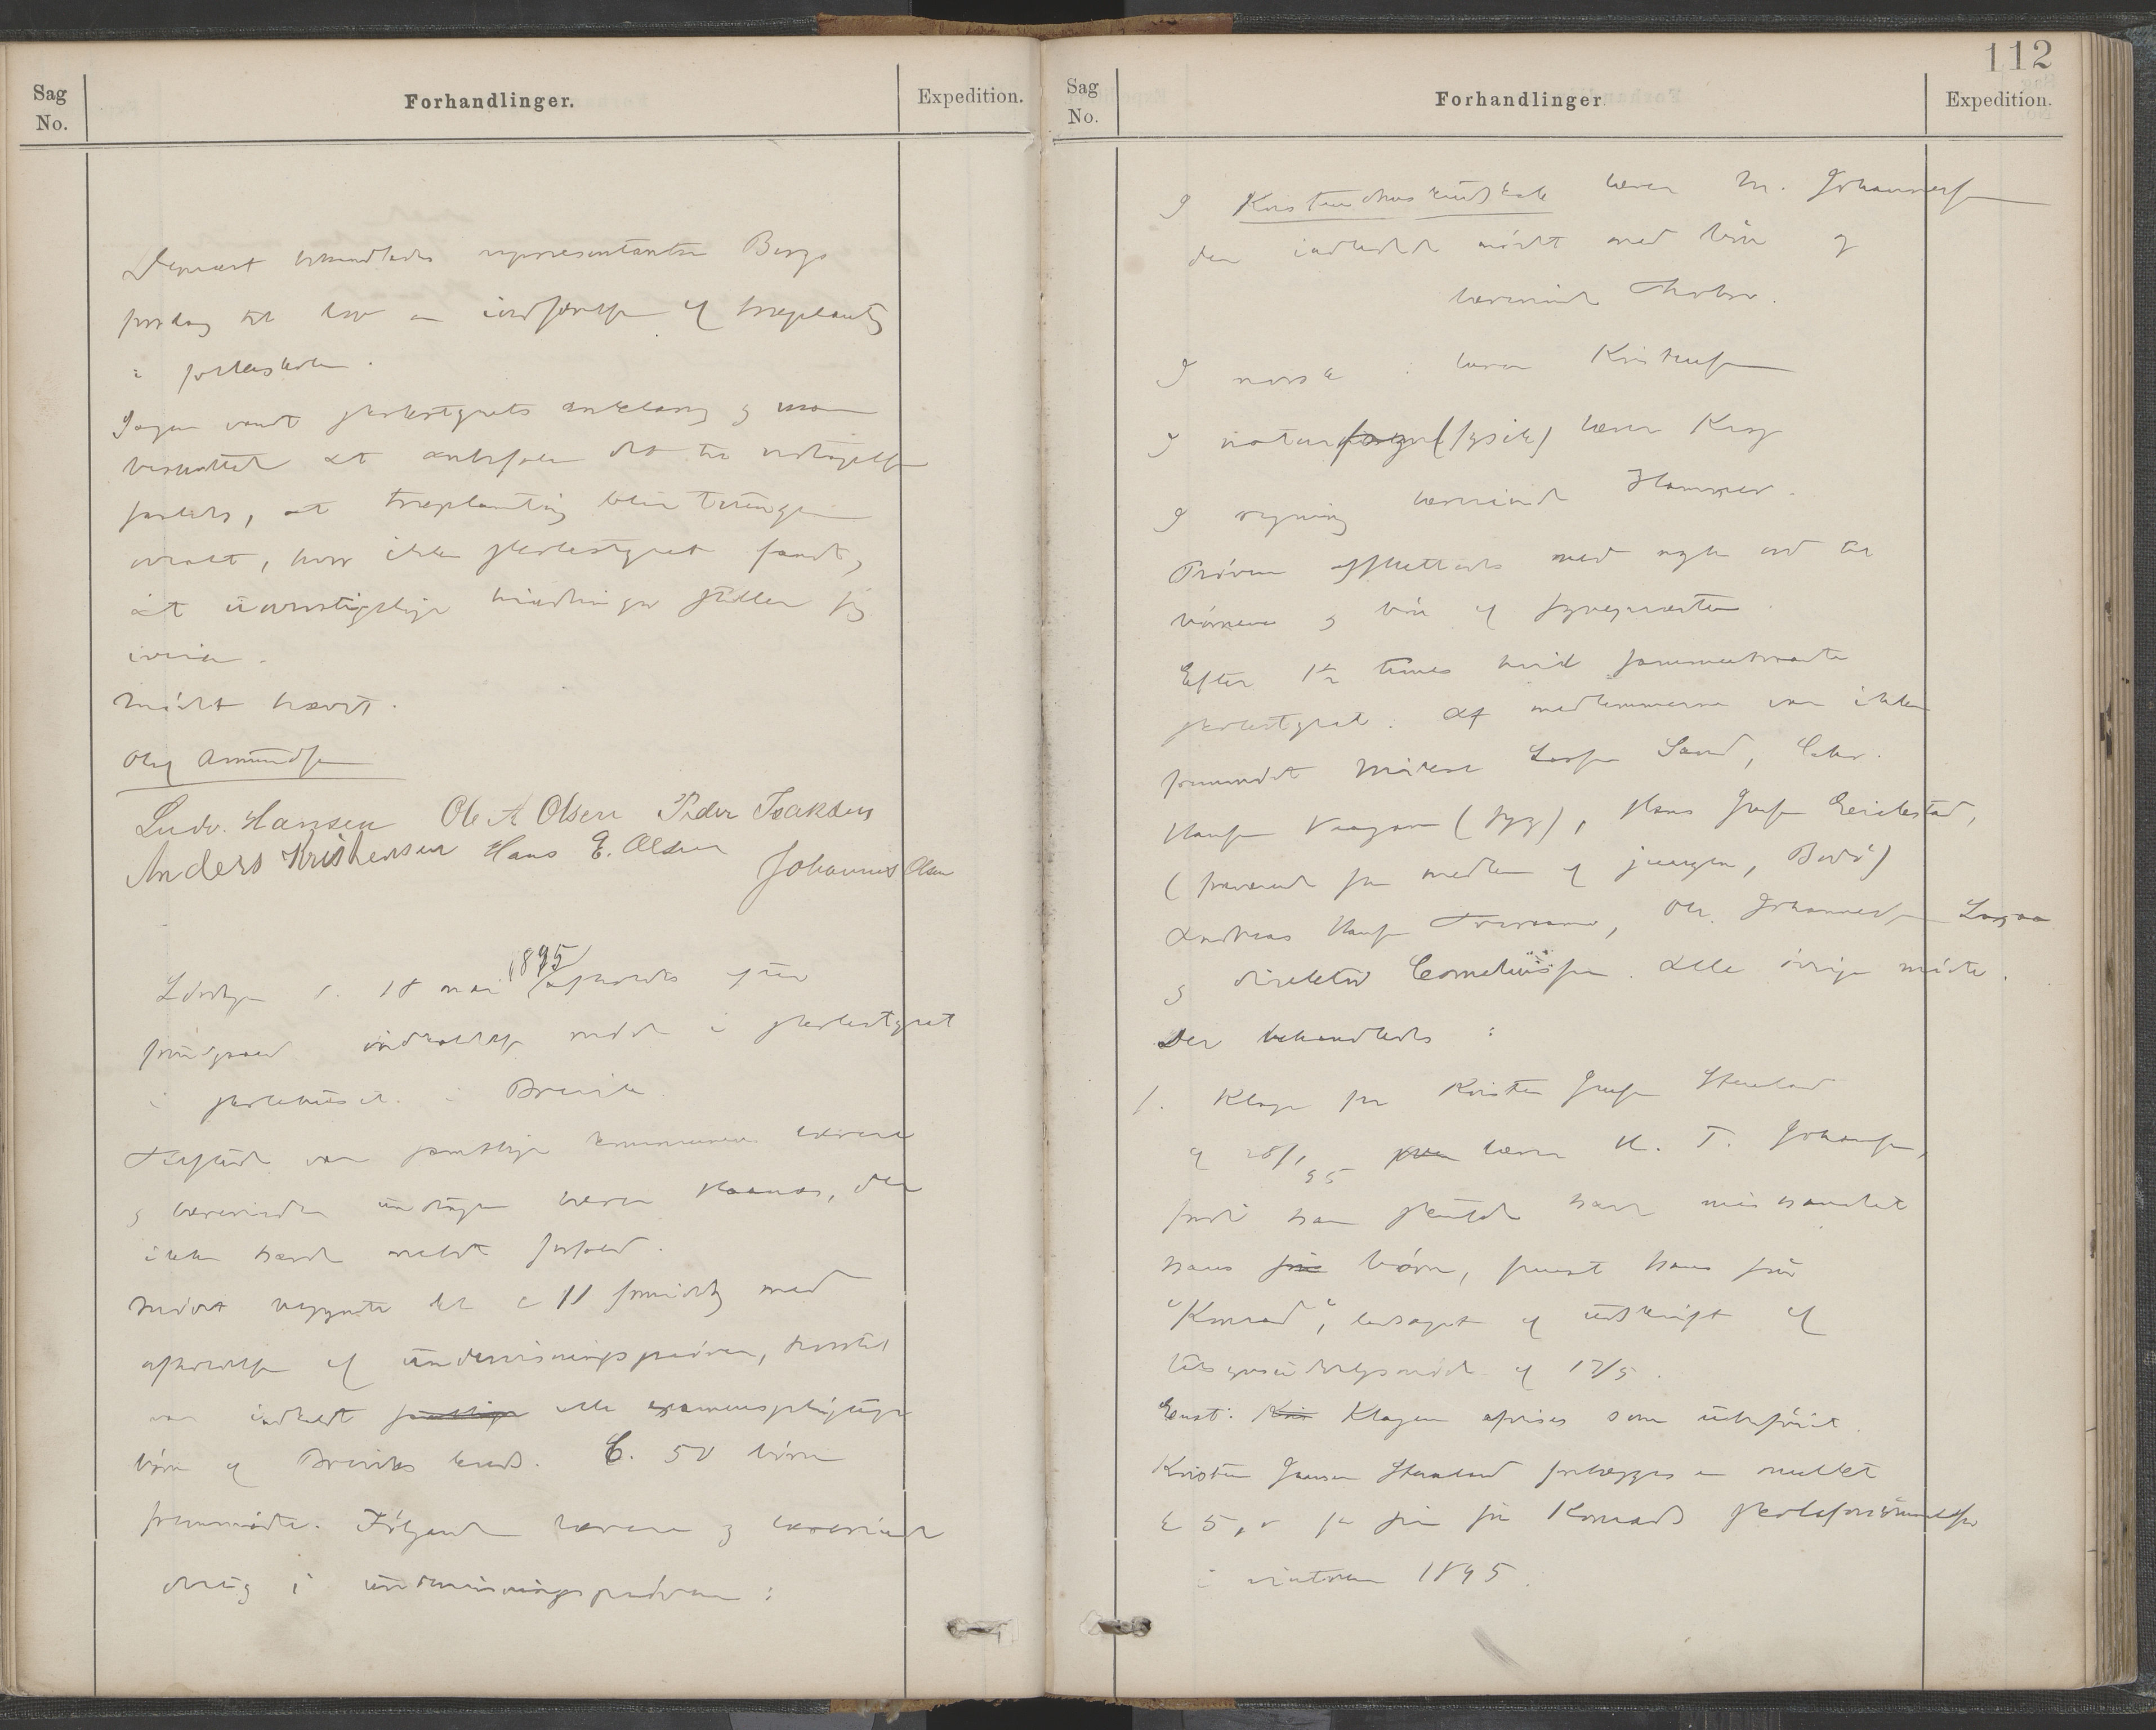 Sag
No.
Forhandlinger.
Expedition.
Dernæst behandledes repræsentanten Bergs
forslag til lov om indførelse af træplantning
i folkeskolen.
Sagen vandt skolestyrets anklang og man
besluttet at anbefale det til vedtagelse
saaledes, at træplantning blir tvungen
overalt, hvor ikke skolestyret fandt,
at uovervindelige hindringer stiller sig
iveien.
Mødet hævet.
Oluf Amundsen
Ludv. Hansen Ole A Olsen Peder Isaksen
Anders Kristensen Hans E. Olsen
Johannes Olsen
Lørdag d. 18 mai 1895 afholdtes efter
forudgaaend indkaldelse møde i skolestyret
i skolehuset i Brevik
Tilstede var samtlige kommunens lærere
og lærerinder undtagen lærer Haanes, der
ikke havde meldt forfald.
Mødet begyndte kl c 11 formidd. med
afholdelse af undervisningsprøven, hvortil
var indkaldt samtlige alle examenspligtige
børn af Breviks kreds. C. 50 børn
fremmødte. Følgende lærere og lærerinder
deltog i undervisningsprøven:
112
Sag
No.
Forhandlinger
Expedition.
I Kristendomskundskab lærer M. Johannesen
der indledede mødet med bøn og
lærerinde
I norsk: lærer Kristensen
I naturfagene (fysik) lærer Krog
I regning lærerinde Hammer.
Prøven afsluttedes med nogle ord til
børnene og bøn af sognepræsten.
Efter 1½ times hvil sammentraadte
skolestyret. Af medlemmerne var ikke
fremmødt Mikal Larsen Sand, Chr.
Hansen Vaagan (syg), Hans Jensen Geitestad,
(fraværende som medlem af juryen, Bodø)
Andreas Hansen, Ole Johannesen Langaa
og direktør Corneliussen. Alle øvrige mødte.
Der behandledes:
1. Klage fra Kristen Jensen Stenland
af 28/1 95 over lærer H. T. Johansen,
fordi han skulde have mishandlet
hans sine børn, særst hans søn
"Konrad", ledsaget af udskrift af
tilsynsudvalgsmøde af 17/5.
Enst: Kris Klagen afvises som ubeføiet.
Kristen Jensen Stenland forelægges en mulkt
k 5,0 for sin søn Konrads skoleforsømmelser
i vinteren 1895.